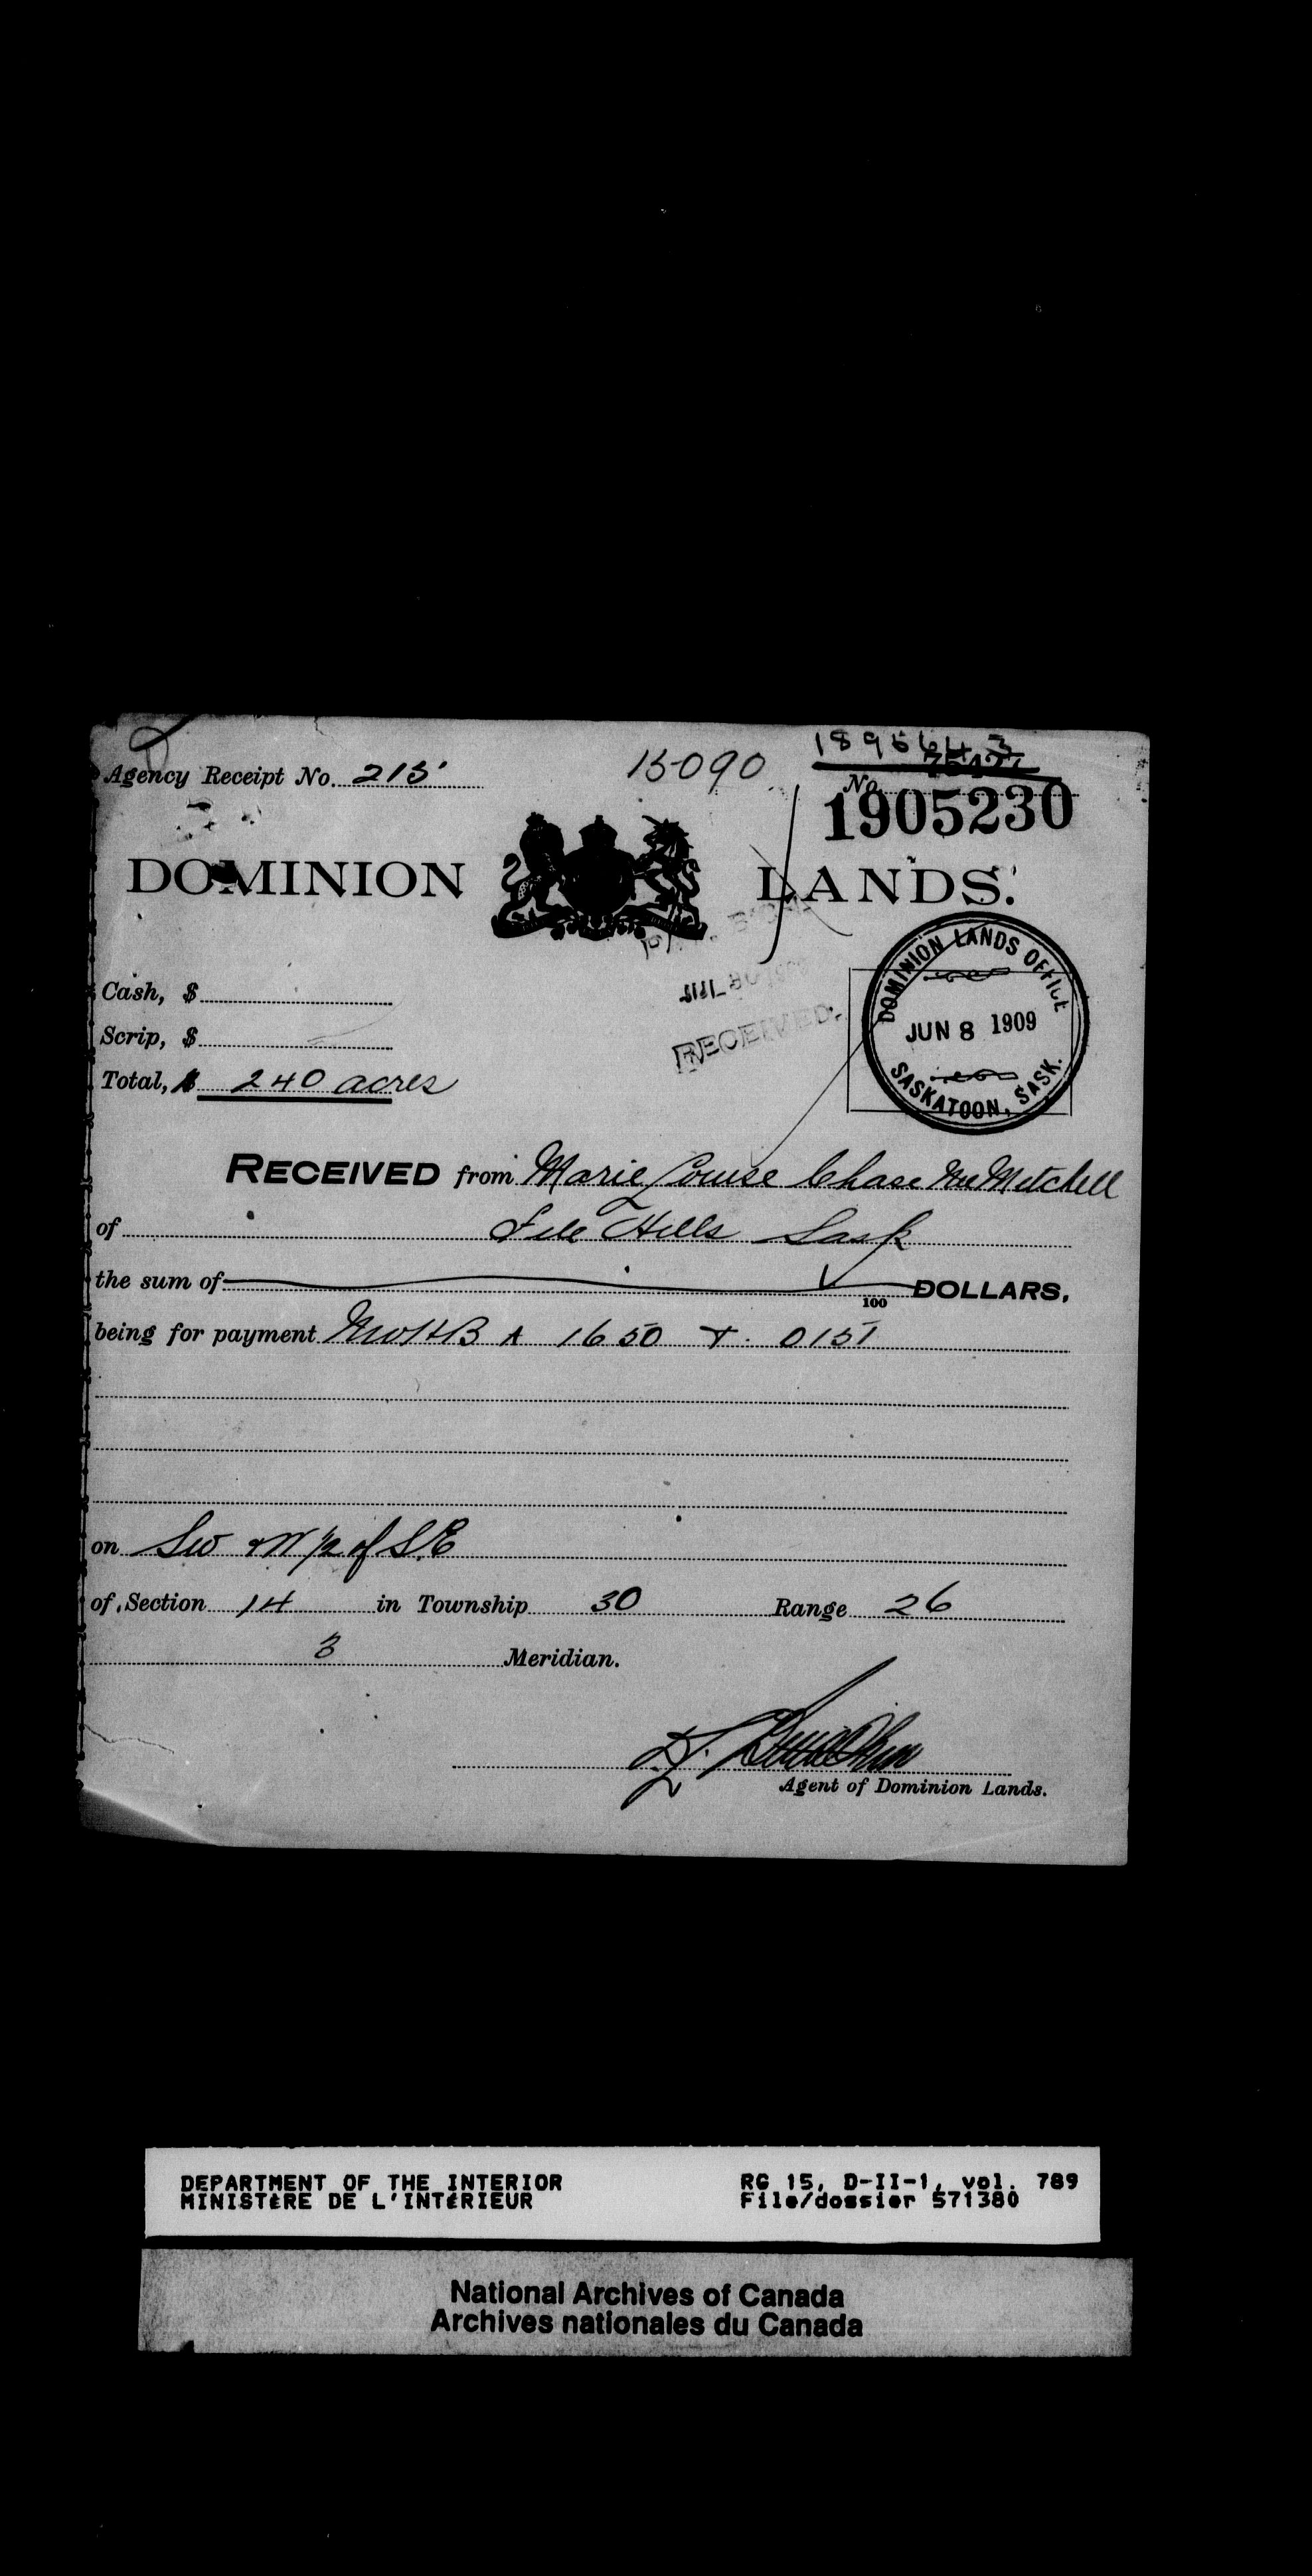 Agency Receipt No. 215
15090
1895643
No.
1905230
DOMINION LANDS.
DOMINION LANDS OFFICE
JUN 8 1909
SASKATOON, SASK.
Cash, $
Scrip, $
Total, $ 240 acres
RECEIVED.
RECEIVED from Marie Louise Chase nee Mitchell
of File Hills Sask
the sum of 100 DOLLARS,
being for payment NWHB A 1650 + 0151
on SW & W 1/2 of S.E
of Section 14 in Township 30 Range 26
3 Meridian.
Agent of Dominion Lands.
DEPARTMENT OF THE INTERIOR
MINISTÈRE DE L'INTÉRIEUR
RG 15, D-II-1, vol. 789
File/dossier 571380
National Archives of Canada
Archives nationales du Canada